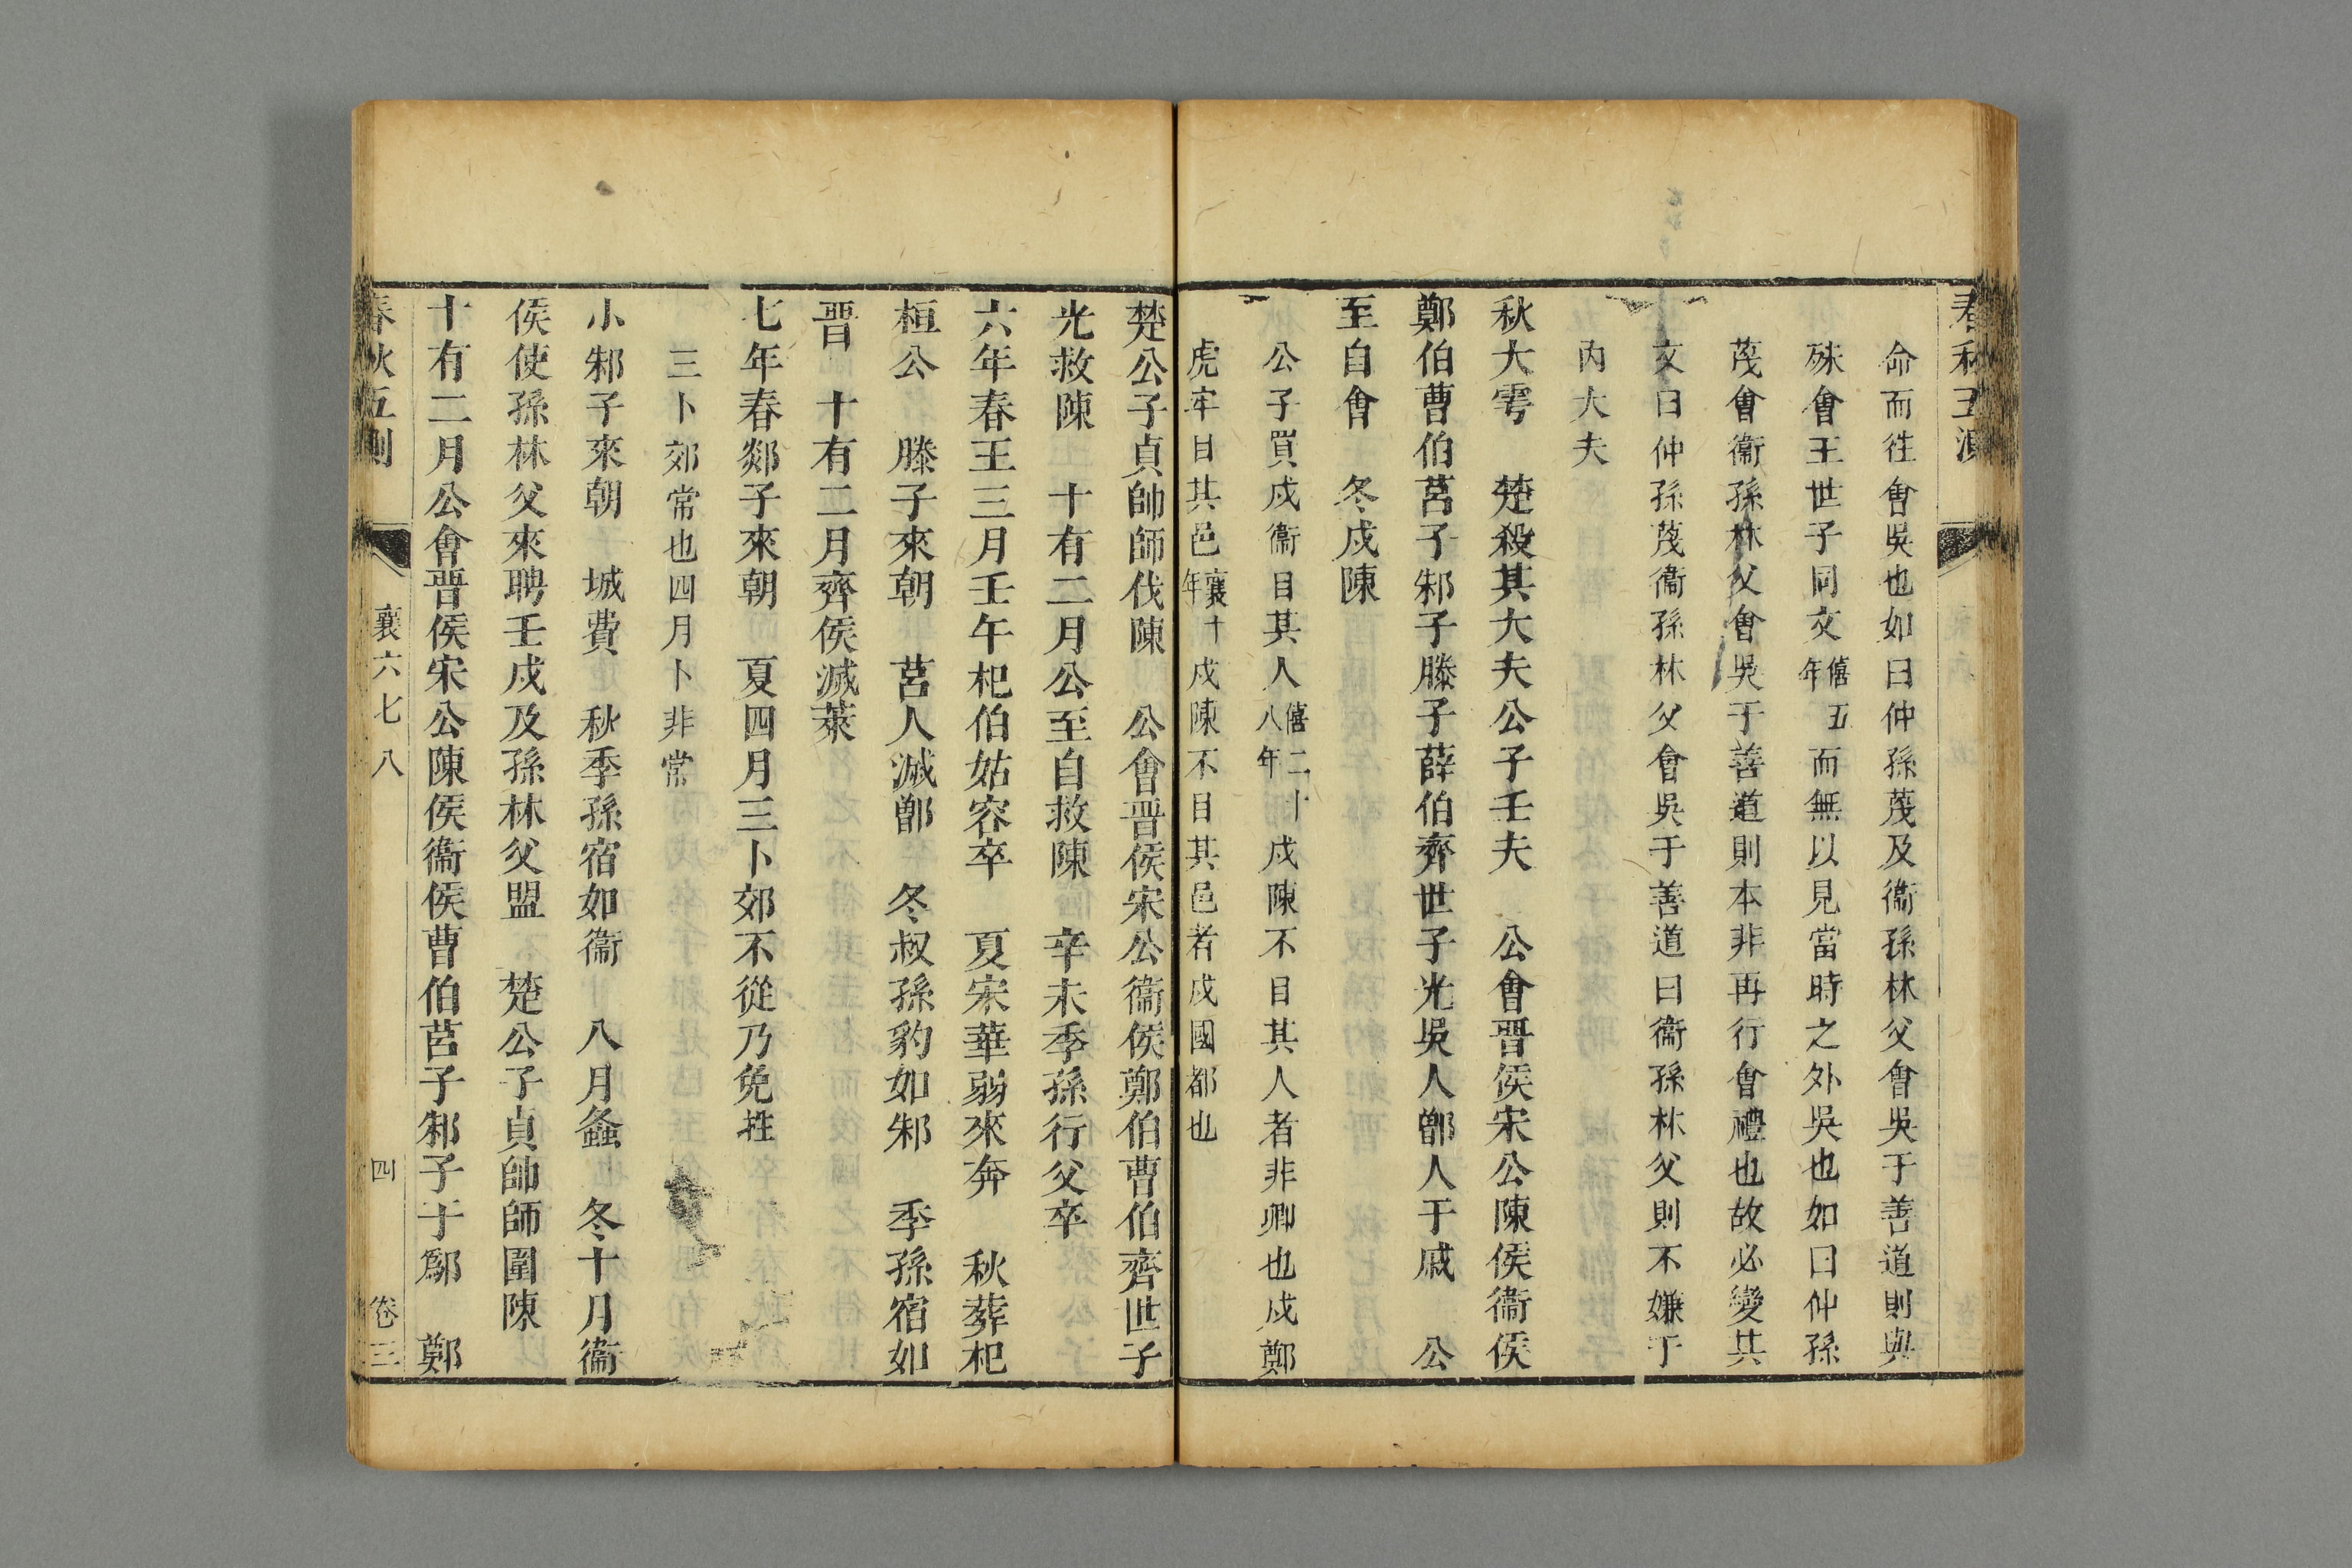 命而徃會吳也如曰仲孫蔑及衞孫林父會吳于善道則與
殊會王世子同文僖五年而無以見當時之外吳也如曰仲孫
蔑會衞孫林父會吳于善道則本非再行會禮也故必變其
文曰仲孫蔑衞孫林父會吳于善道曰衞孫林父則不嫌于
內大夫
秋大雩　楚殺其大夫公子壬夫　公會晉侯宋公陳侯衞侯
鄭伯曹伯莒子邾子滕子薛伯齊世子光吳人鄫人于戚　公
至自會　冬戍陳
公子買戍衞目其人僖二十八年戍陳不目其人者非卿也戍鄭
虎牢目其邑襄十年戍陳不目其邑者戍國都也
楚公子貞帥師伐陳　公會晉侯宋公衞侯鄭伯曹伯齊世子
光救陳　十有二月公至自救陳　辛未季孫行父卒
六年春王三月壬午杞伯姑容卒　夏宋華弱來奔　秋葬杞
桓公　滕子來朝　莒人滅鄫　冬叔孫豹如邾　季孫宿如
晉　十有二月齊侯滅萊
七年春郯子來朝　夏四月三卜郊不從乃免牲
三卜郊常也四月卜非常
小邾子來朝　城費　秋季孫宿如衞　八月螽　冬十月衞
侯使孫林父來聘壬戌及孫林父盟　楚公子貞帥師圍陳
十有二月公會晉侯宋公陳侯衞侯曹伯莒子邾子于鄬　鄭
春秋五測　襄六七八　四　卷三